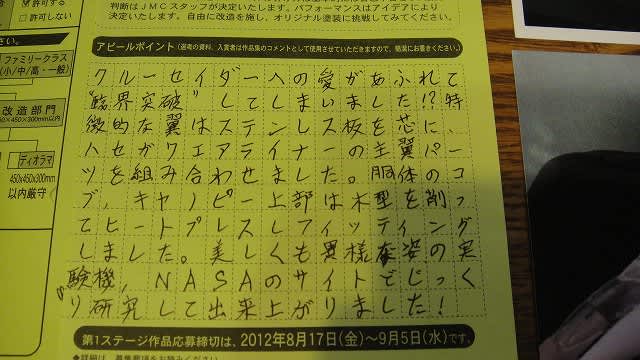 判断はJMCスタッフが決定いたします。パフォーマンスはアイデアにより
決定いたします。自由に改造を施し、オリジナル塗装に挑戦してみてください。
許可しない
許可する
さい。
ファミリークラス
(小/中/高・一般)
改造部門
450×450×300mm以内
ディオラマ
450x450x300mm
以内厳守
アピールポイント(選考の資料、入賞者は作品集のコメントとして使用させていただきますので、簡潔にお書きください。)
クルーセイダーへの愛があふれて
"臨界突破"してしまいました!?特
徴的な翼はステンレス板を芯に、
ハセガワエアライナーの主翼パー
ツを組み合わせました。胴体のコ
ブ、キャノピー上部は木型を削っ
てヒートプレスしフィッティング
しました。美しくも異様な姿の実
験機、NASAのサイトでじっく
り研究して出来上がりました!
第1ステージ作品応募締切は、2012年8月17日(金)~9月5日(水)です。